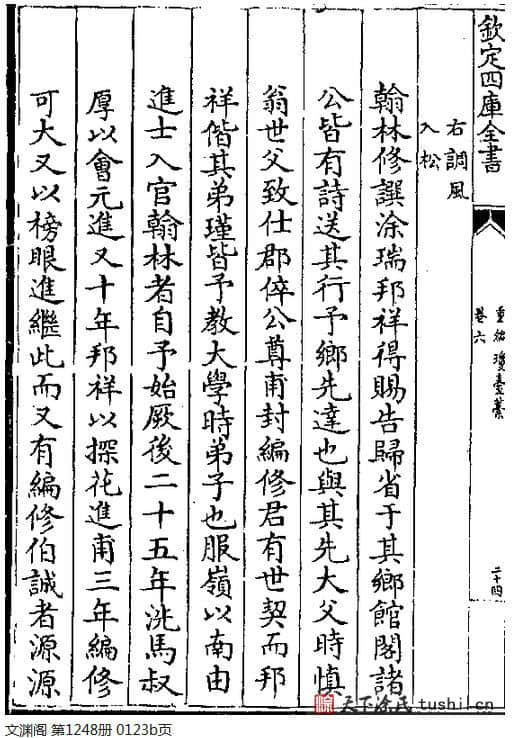 欽定四庫全書
重編瓊臺藁
卷六
二十四
右調風
入松
翰林修譔涂瑞邦祥得賜告歸省于其鄉館閣諸
公皆有詩送其行予鄉先達也與其先大父時慎
翁世父致仕郡倅公尊甫封編修君有世契而邦
祥偕其弟瑾皆予教大學時弟子也服嶺以南由
進士入官翰林者自予始厥後二十五年洗馬叔
厚以會元進又十年邦祥以探花進甫三年編修
可大又以榜眼進繼此而又有編修伯誠者源源
天下涂氏 tushi.cn
文渊阁 第1248册 0123b页